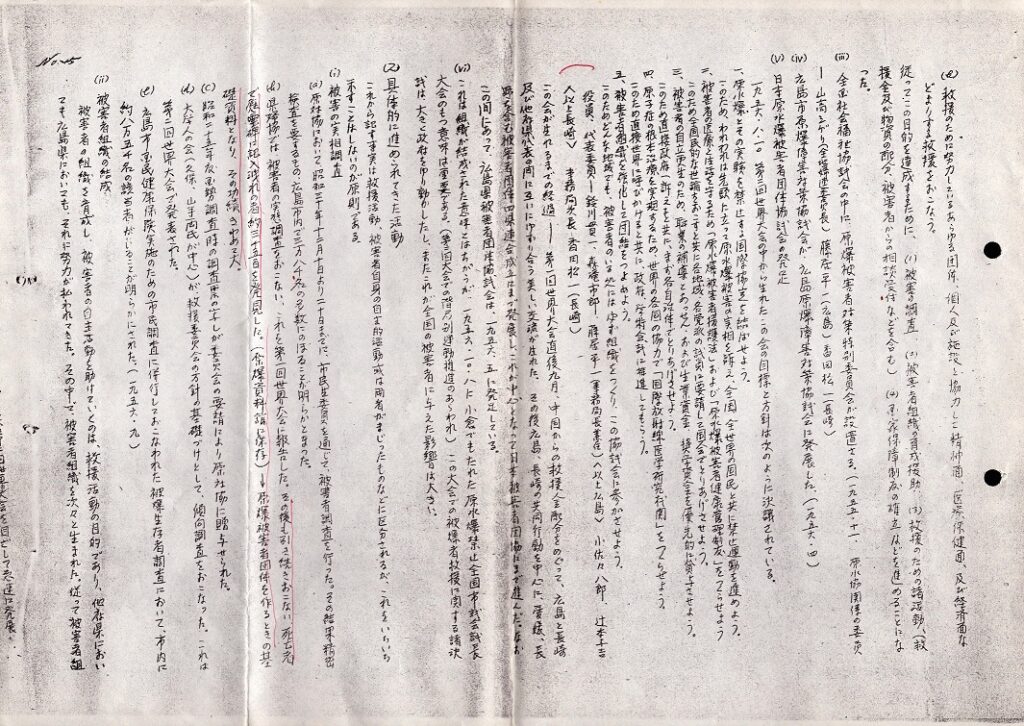 (e) 救援のために努力しているあらゆる団体、個人及び施設と協力して精神面、医療保健面、及び経済面な
どより行う救援をおこなう。
従ってこの目的を達成するために、(1) 被害の調査 (2) 被害者組織の育成援助 (3) 救援のための諸活動、(救
援金及び物資の配分、被害者からの相談受付などを含む) (4) 国家保障制度の確立などを進めることにな
った。
(iii) 全国社会福祉協議会の中に、原爆被害者対策特別委員会が設置さる。(一九五五・十一、原水協関係の委員
藤居平一(広島) 香田松一(長崎)
(iv) 広島市原爆障害対策協議会が、広島原爆障害対策協議会に発展した。(一九五六・四)
(v) 日本原水爆被害者団体協議会の発足
一九五六・八・一〇 第二回世界大会の中から生れたこの会の目標と方針は次のように決議されている。
一、原水爆とその実験を禁止する国際協定を結ばせよう。
このため、われわれは先頭に立って原水爆被害の実相を訴え、全国、全世界の国民と共に禁止運動を進めよう。
二、被害者の医療と生活を守るため「原水爆被害者援護法」および「原水爆被害者健康管理制度」をつくらせよう
このため、全国民的な世論をおこすと共に各地域各党派の議員に要請して国会でとりあげさせよう。
三、被害者の自立更生のため、職業の補導とあっせん、および生業資金、奨学資金を優先的に貸与させよう。
このため直接政府へ訴えると共に、まず各自治体でとりあげさせよう。
四、原子症の根本治療を実現するため、世界の各国の協力で「国際放射線医学研究機関」をつくらせよう。
このため直接世界に呼びかけると共に、政府、学術会議に推進してもらう。
五、被害者の組織を強化して団結をつよめよう。
このためどんな地域でも、被害者のいる処にはかならず組織をつくり、この協議会に参加させよう。
役員、代表委員ー鈴川貫一、森滝市郎、藤居平一(事務局長兼任)(以上広島) 小佐々八郎、辻本与吉
(以上長崎) 事務局次長 香田松一(長崎)
この会が生れるまでの経過 ── 第一回世界大会直後九月、中国からの救援金配分をめぐって、広島と長崎
及び他府県代表の間に互いにゆずり合う美しい交流が生れた。その後広島、長崎の共同行動を中心に愛媛、長
野を含む被害者団体四県連合成立にまで発展し、これが中心となって日本被害者団体協にまで進んだ。なお
この間にあって、広島県被害者団体協議会は、一九五六・五に発足している。
(vi) これは組織が結成された意味とはちがうが、一九五六・一〇・八に小倉でもたれた原水爆禁止全国市議会議長
大会のもつ意味は重要である。(第二回大会での階層別運動推進のあらわれ) この大会での被爆者救援に関する諸決
議は、大きく政府をゆり動かしたし、またこれが全国の被害者に与えた影響は大きい。
(2) 具体的に進められてきた活動
これから記す事実は救援活動、被害者自身の自主的活動或は両者がまじったものなどに区分されるが、これをいちいち
示すことはしないのが原則である。
(i) 被害の実相調査
(a) 原対協において、昭和二十九年十二月十日より二十日までに、市民生委員を通じて、被害者調査を行った。その結果精密
検査を要するもの、広島市内で三万人の多数にのぼることが明らかとなった。
(b) 県環境協は、被害者の実態調査をおこない、これを第一回世界大会に報告した。その後も引き続きおこない死亡者
で慰霊碑に記減れの者約三十五名を発見した。(原爆資料館に保存) ─ 原爆被害者団体を作るときの基
礎資料となり、その功績きわめて大。
(c) 昭和二十五年度国勢調査時の調査票の写しが委員会の要請により原対協に贈与せられた。
(d) 大学人会(久保、山手両氏が中心)が救援委員会の方針の基礎づけとして、傾向調査をおこなった。これは
第二回世界大会で発表された。
(e) 広島市国民健康保険実施のための市民調査に併行しておこなわれた被爆生存者調査において、市内に
約八万五千名の該当者がいることが明らかにされた。(一九五六・九)
(ii) 被害者組織の結成
被害者の組織を育成し、被害者の自主活動を助けていくことは、救援活動の目的であり、他府県におい
ても広島県においても、それに努力が払われてきた。その中で、被害者組織も次々と生まれた。従って被害者組
No. 15